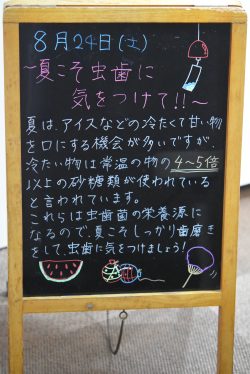 8月24日(土)
～夏こそ虫歯に
気をつけて!!～
夏は、アイスなどの冷たくて甘い物
を口にする機会が多いですが、
冷たい物は常温の物の4～5倍
以上の砂糖類が使われている
と言われています。
これらは虫歯菌の栄養源に
なるので、夏こそしっかり歯磨き
をして、虫歯に気をつけましょう!